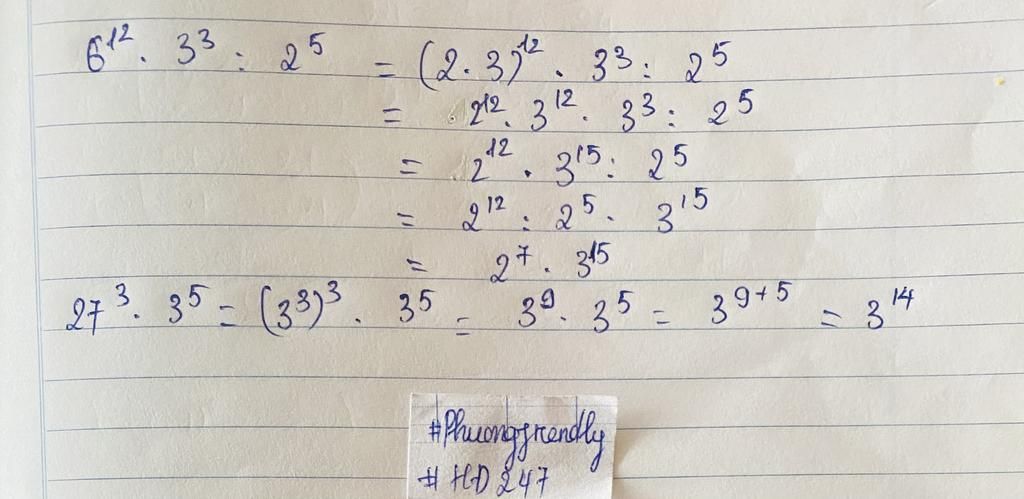 6¹² . 3³ : 2⁵ = (2 . 3)¹² . 3³ : 2⁵
= 2¹² . 3¹² . 3³ : 2⁵
= 2¹² . 3¹⁵ : 2⁵
= 2¹² : 2⁵ . 3¹⁵
= 2⁷ . 3¹⁵
27³ . 3⁵ = (3³)³ . 3⁵ = 3⁹ . 3⁵ = 3⁹⁺⁵ = 3¹⁴
#Phuongfrendly
#HD247